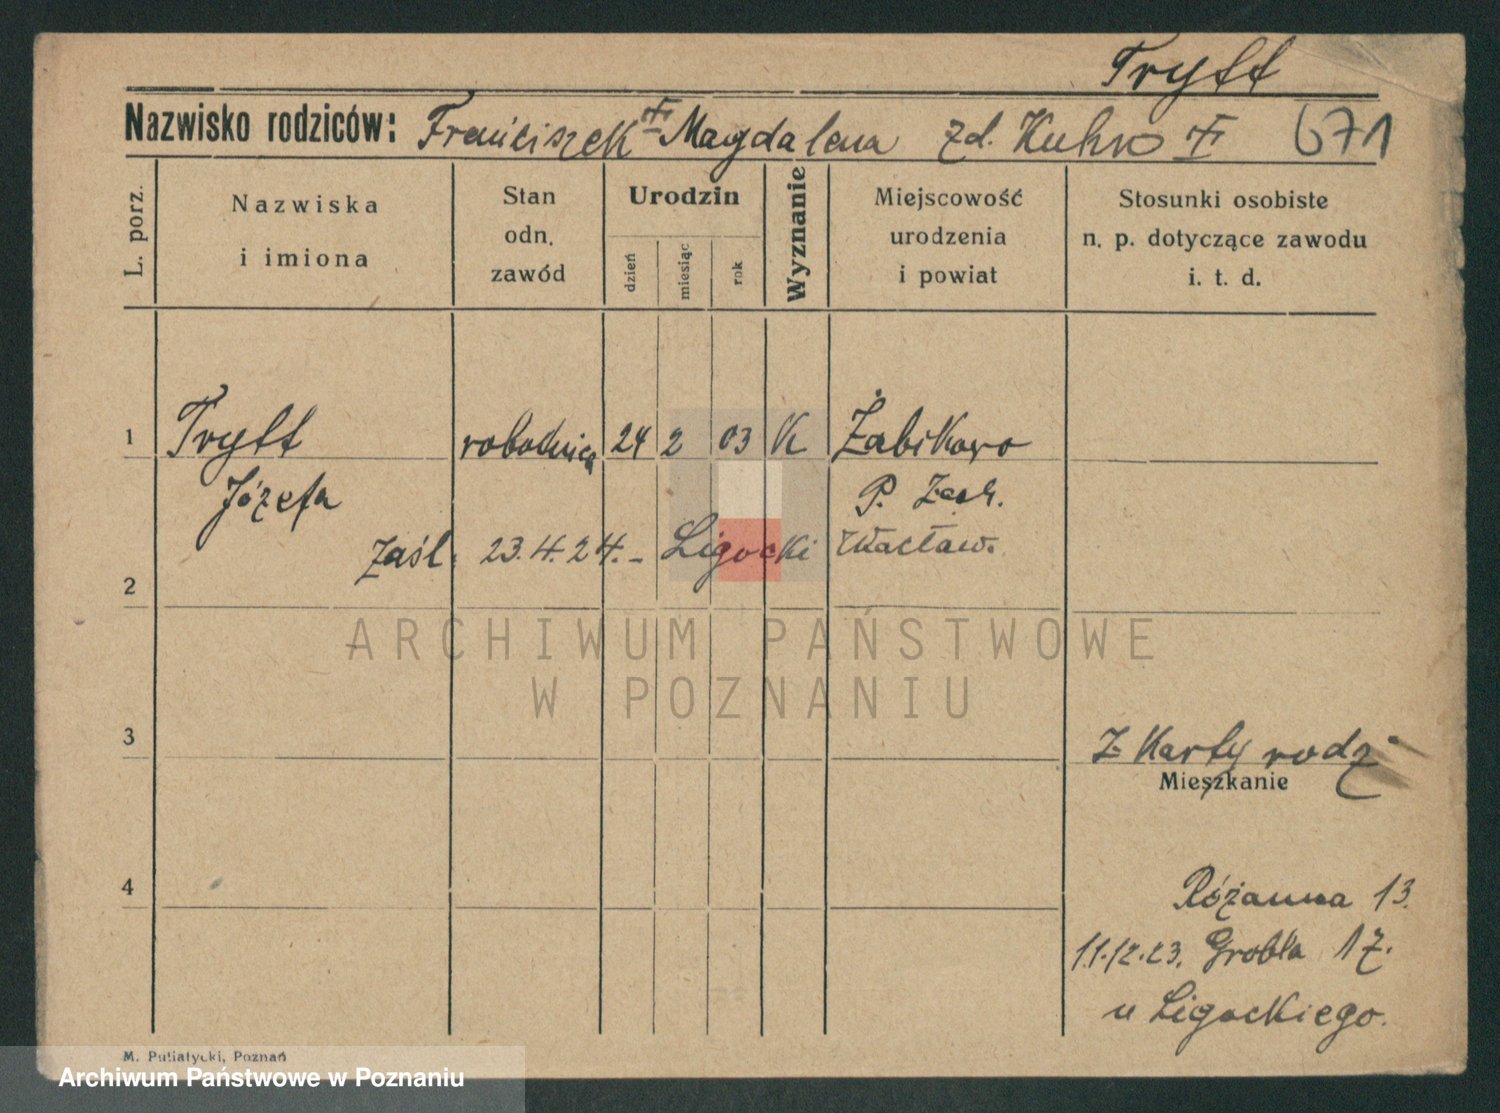 Trytt
Nazwisko rodziców: Franciszek Magdalena zd. Kuhn 671
L. porz.
Nazwiska
i imiona
Stan
odn.
zawód
Urodzin
dzień
miesiąc
rok
Wyznanie
Miejscowość
urodzenia
i powiat
Stosunki osobiste
n. p. dotyczące zawodu
i. t. d.
1 Trytt robotnica 24 2 03 K Żabikowo
Józefa P. Zach.
zaśl. 23.4.24.- Ligocki Wacław.
2
ARCHIWUM PAŃSTWOWE
W POZNANIU
3 Z Karty rodz.
Mieszkanie
4 Różanna 13.
11.12.23. Grobla 17.
u Ligockiego.
M. Putiatycki, Poznań
Archiwum Państwowe w Poznaniu